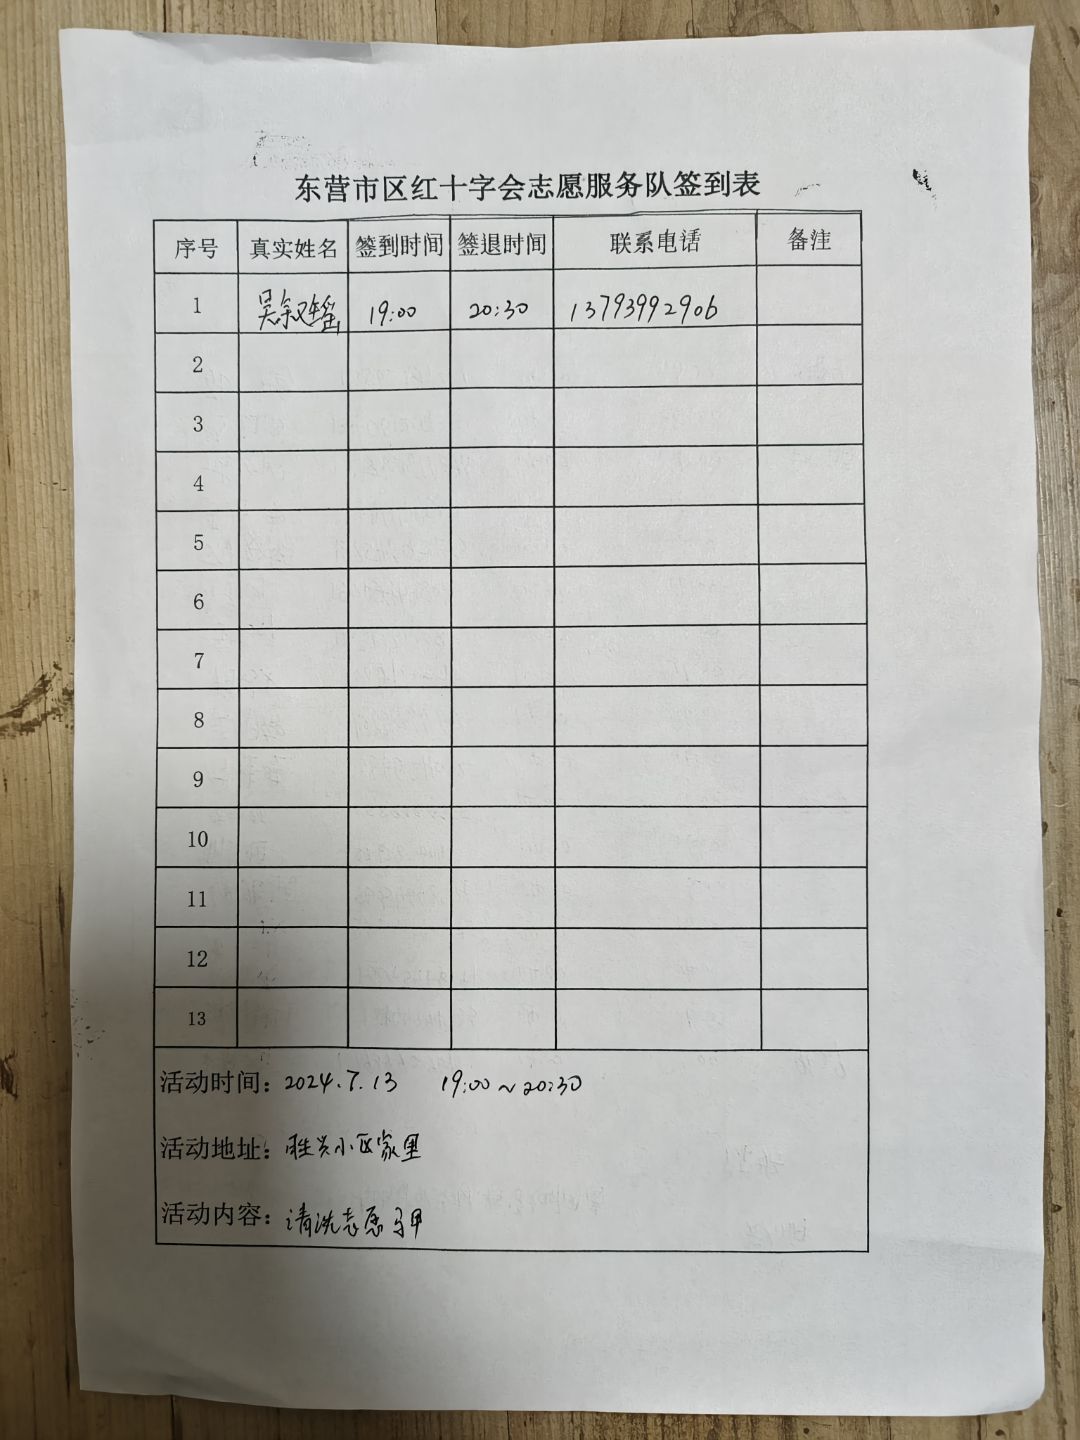 东营市区红十字会志愿服务队签到表
序号 真实姓名 签到时间 签退时间 联系电话 备注
1 吴叙瑶 19:00 20:30 13793992906
2
3
4
5
6
7
8
9
10
11
12
13
活动时间：2024.7.13 19:00～20:30
活动地址：胜兴小区家里
活动内容：清洗志愿马甲